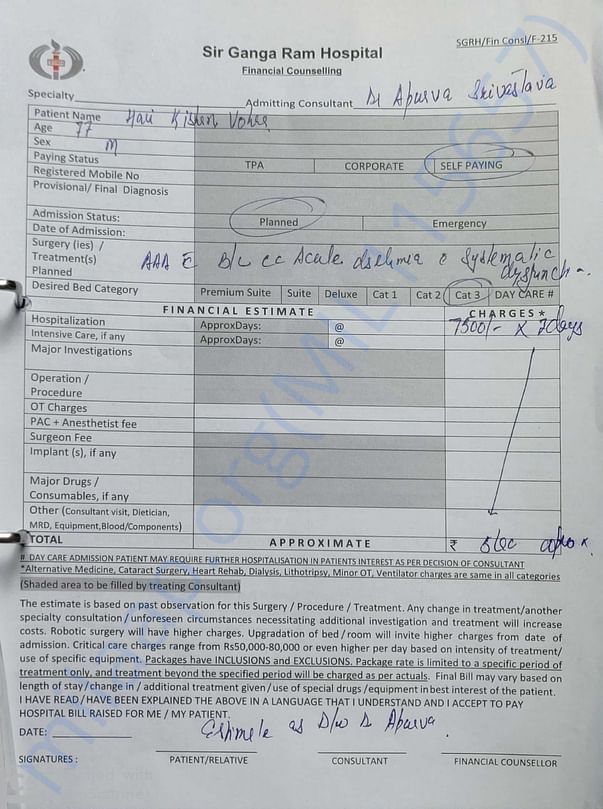 SGRH/Fin Consl/F-215
Sir Ganga Ram Hospital
Financial Counselling
Specialty Admitting Consultant Dr Apurva Srivastava
Patient Name Hari Kishen Vohra
Age 77
Sex M
Paying Status TPA CORPORATE SELF PAYING
Registered Mobile No
Provisional/ Final Diagnosis
Admission Status: Planned Emergency
Date of Admission:
Surgery (ies) /
Treatment(s)
Planned
AAA Acute
Desired Bed Category Premium Suite Suite Deluxe Cat 1 Cat 2 Cat 3 DAY CARE #
FINANCIAL ESTIMATE CHARGES *
Hospitalization ApproxDays: @ 7500/- X 7 days
Intensive Care, if any ApproxDays: @
Major Investigations
Operation /
Procedure
OT Charges
PAC + Anesthetist fee
Surgeon Fee
Implant (s), if any
Major Drugs /
Consumables, if any
Other (Consultant visit, Dietician,
MRD, Equipment,Blood/Components)
TOTAL APPROXIMATE ₹ approx.
# DAY CARE ADMISSION PATIENT MAY REQUIRE FURTHER HOSPITALISATION IN PATIENTS INTEREST AS PER DECISION OF CONSULTANT
*Alternative Medicine, Cataract Surgery, Heart Rehab, Dialysis, Lithotripsy, Minor OT, Ventilator charges are same in all categories
(Shaded area to be filled by treating Consultant)
The estimate is based on past observation for this Surgery / Procedure / Treatment. Any change in treatment/another
specialty consultation / unforeseen circumstances necessitating additional investigation and treatment will increase
costs. Robotic surgery will have higher charges. Upgradation of bed / room will invite higher charges from date of
admission. Critical care charges range from Rs50,000-80,000 or even higher per day based on intensity of treatment/
use of specific equipment. Packages have INCLUSIONS and EXCLUSIONS. Package rate is limited to a specific period of
treatment only, and treatment beyond the specified period will be charged as per actuals. Final Bill may vary based on
length of stay/change in / additional treatment given/use of special drugs /equipment in best interest of the patient.
I HAVE READ/HAVE BEEN EXPLAINED THE ABOVE IN A LANGUAGE THAT I UNDERSTAND AND I ACCEPT TO PAY
HOSPITAL BILL RAISED FOR ME / MY PATIENT.
Estimate as D/w Dr Apurva.
DATE:
SIGNATURES : PATIENT/RELATIVE CONSULTANT FINANCIAL COUNSELLOR